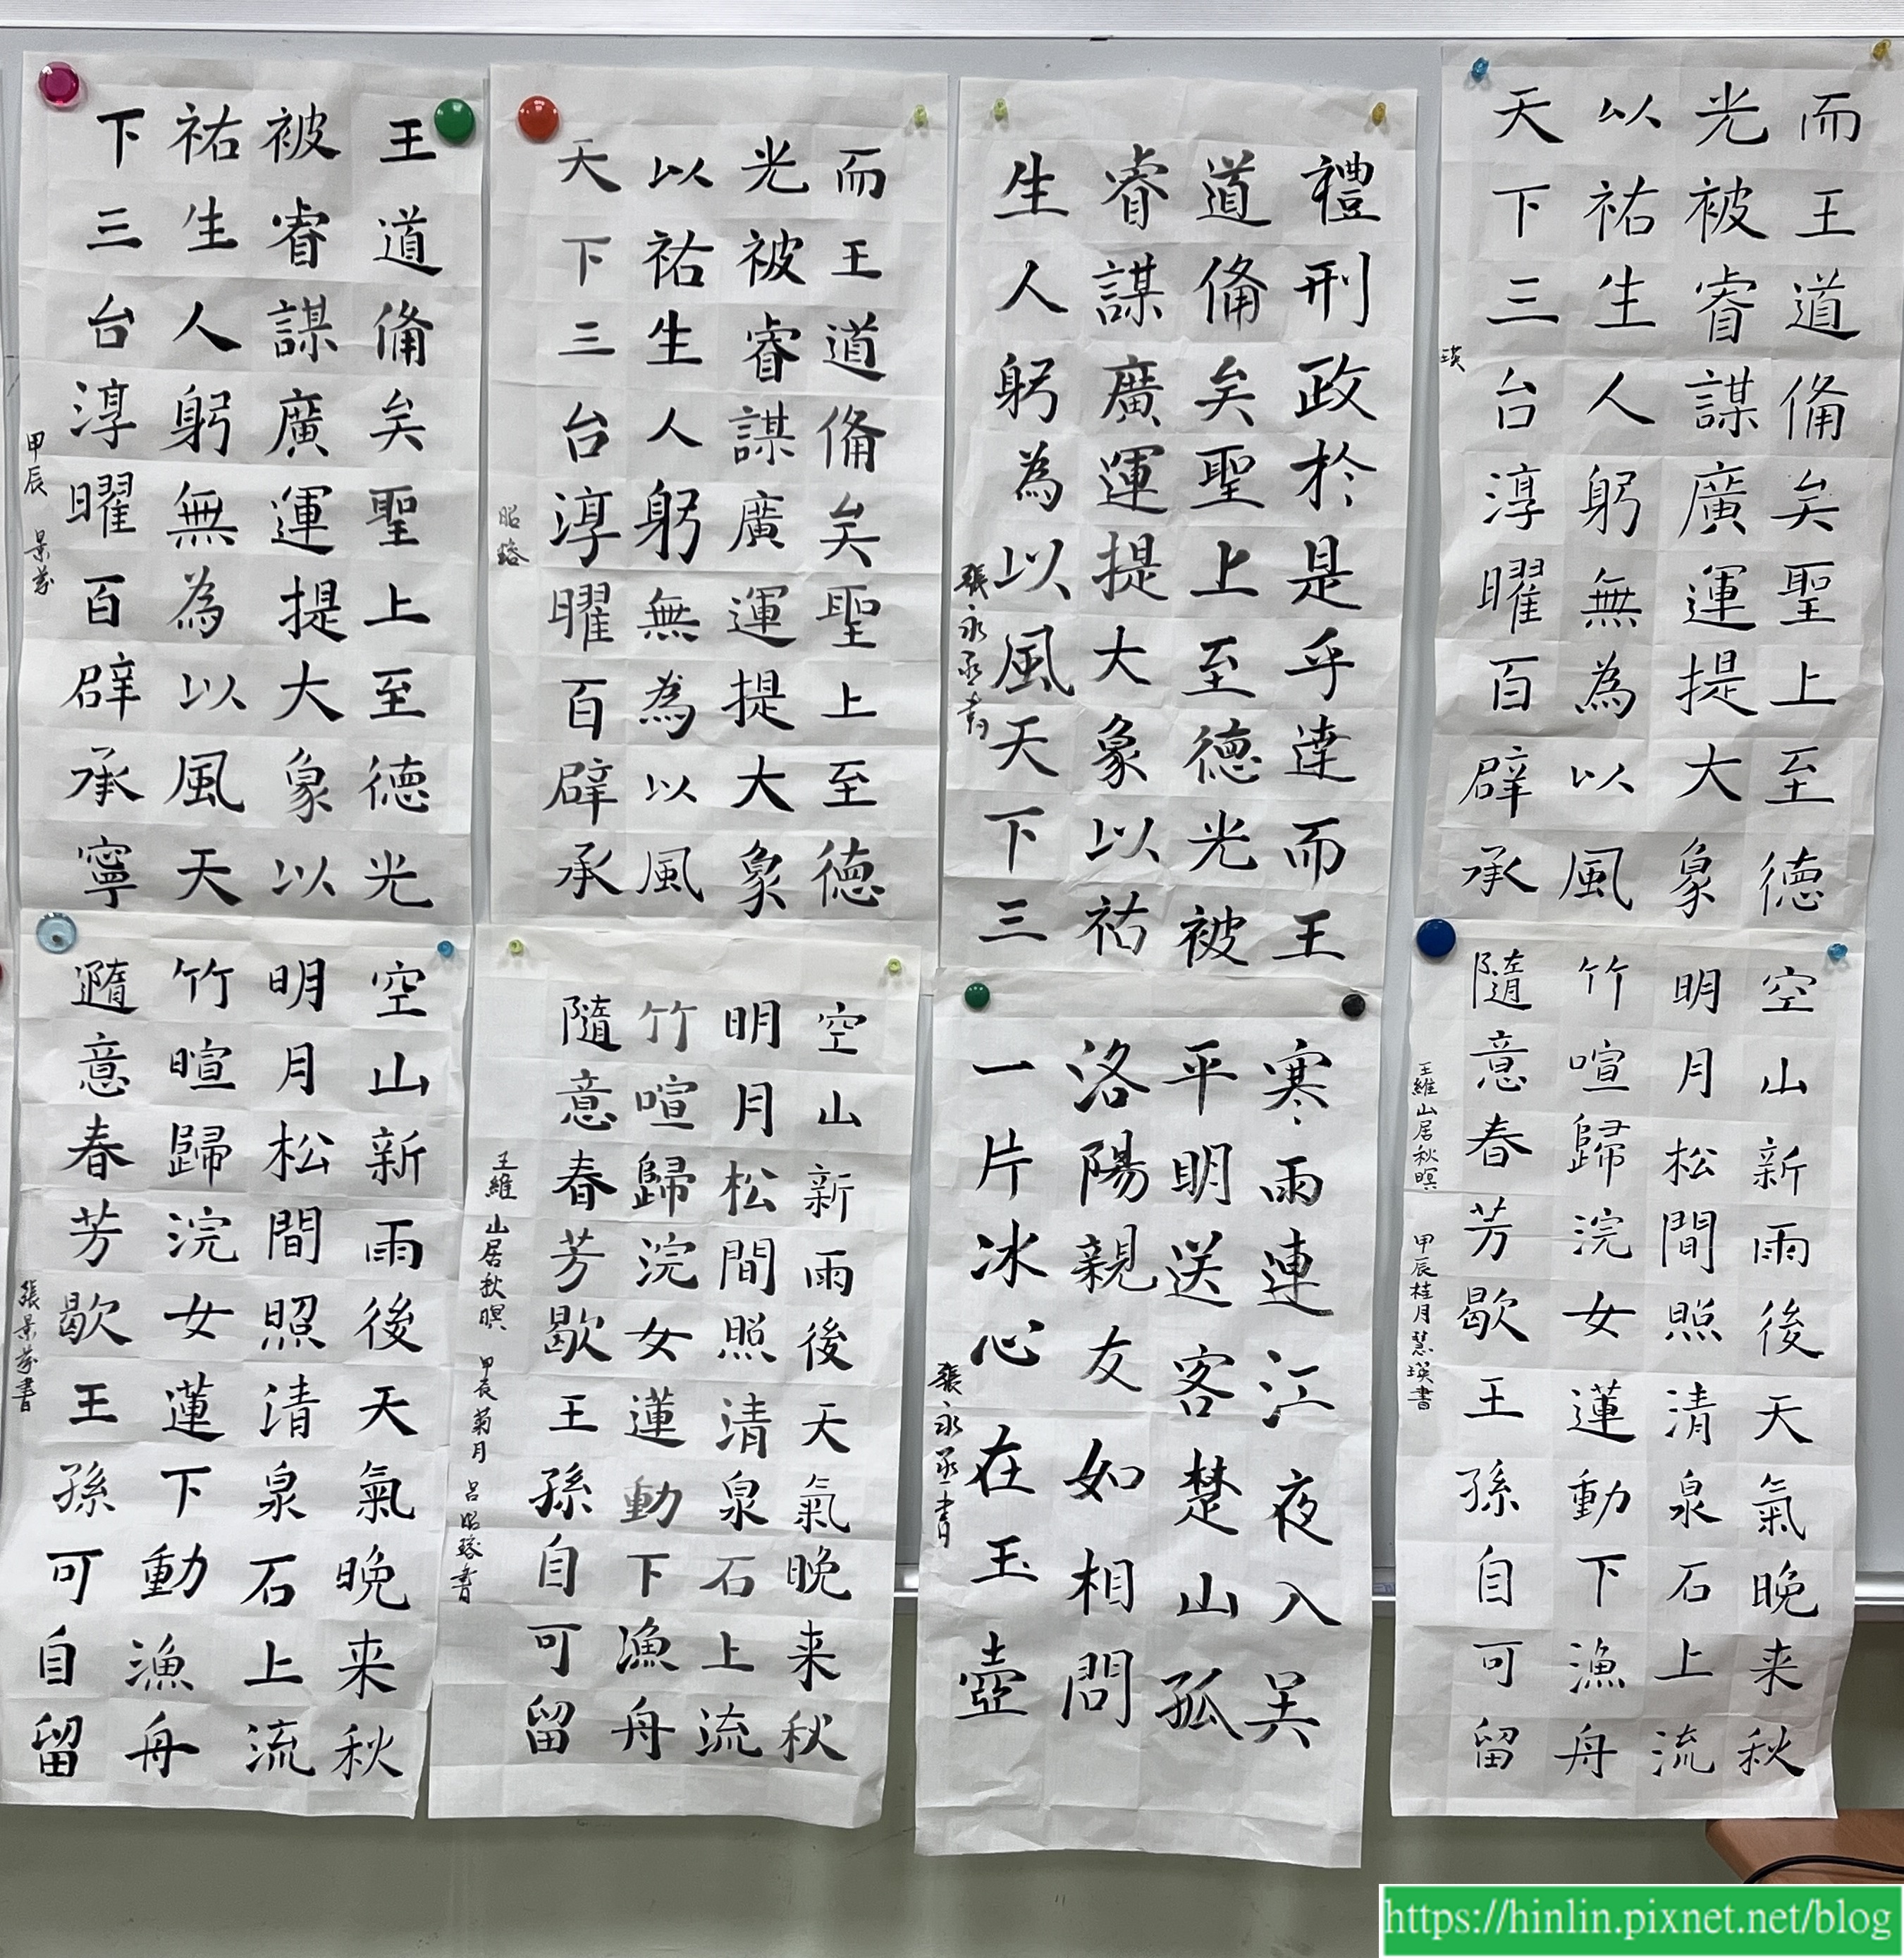 王道備矣聖上至德光
被睿謀廣運提大象以
祐生人躬無為以風天
下三台淳曜百辟承寧
甲辰 景芬
而王道備矣聖上至德
光被睿謀廣運提大象
以祐生人躬無為以風
天下三台淳曜百辟承
昭瑢
禮刑政於是乎達而王
道備矣聖上至德光被
睿謀廣運提大象以祐
生人躬為以風天下三
張永丞書
而王道備矣聖上至德
光被睿謀廣運提大象
以祐生人躬無為以風
天下三台淳曜百辟承
瑛
空山新雨後天氣晚来秋
明月松間照清泉石上流
竹暄歸浣女蓮下動漁舟
隨意春芳歇王孫可自留
張景芬書
空山新雨後天氣晚来秋
明月松間照清泉石上流
竹喧歸浣女蓮動下漁舟
隨意春芳歇王孫自可留
王維 山居秋暝 甲辰菊月 呂昭瑢書
寒雨連江夜入吳
平明送客楚山孤
洛陽親友如相問
一片冰心在玉壺
張永丞書
空山新雨後天氣晚来秋
明月松間照清泉石上流
竹喧歸浣女蓮動下漁舟
隨意春芳歇王孫自可留
王維山居秋暝 甲辰桂月慧瑛書
https://hinlin.pixnet.net/blog